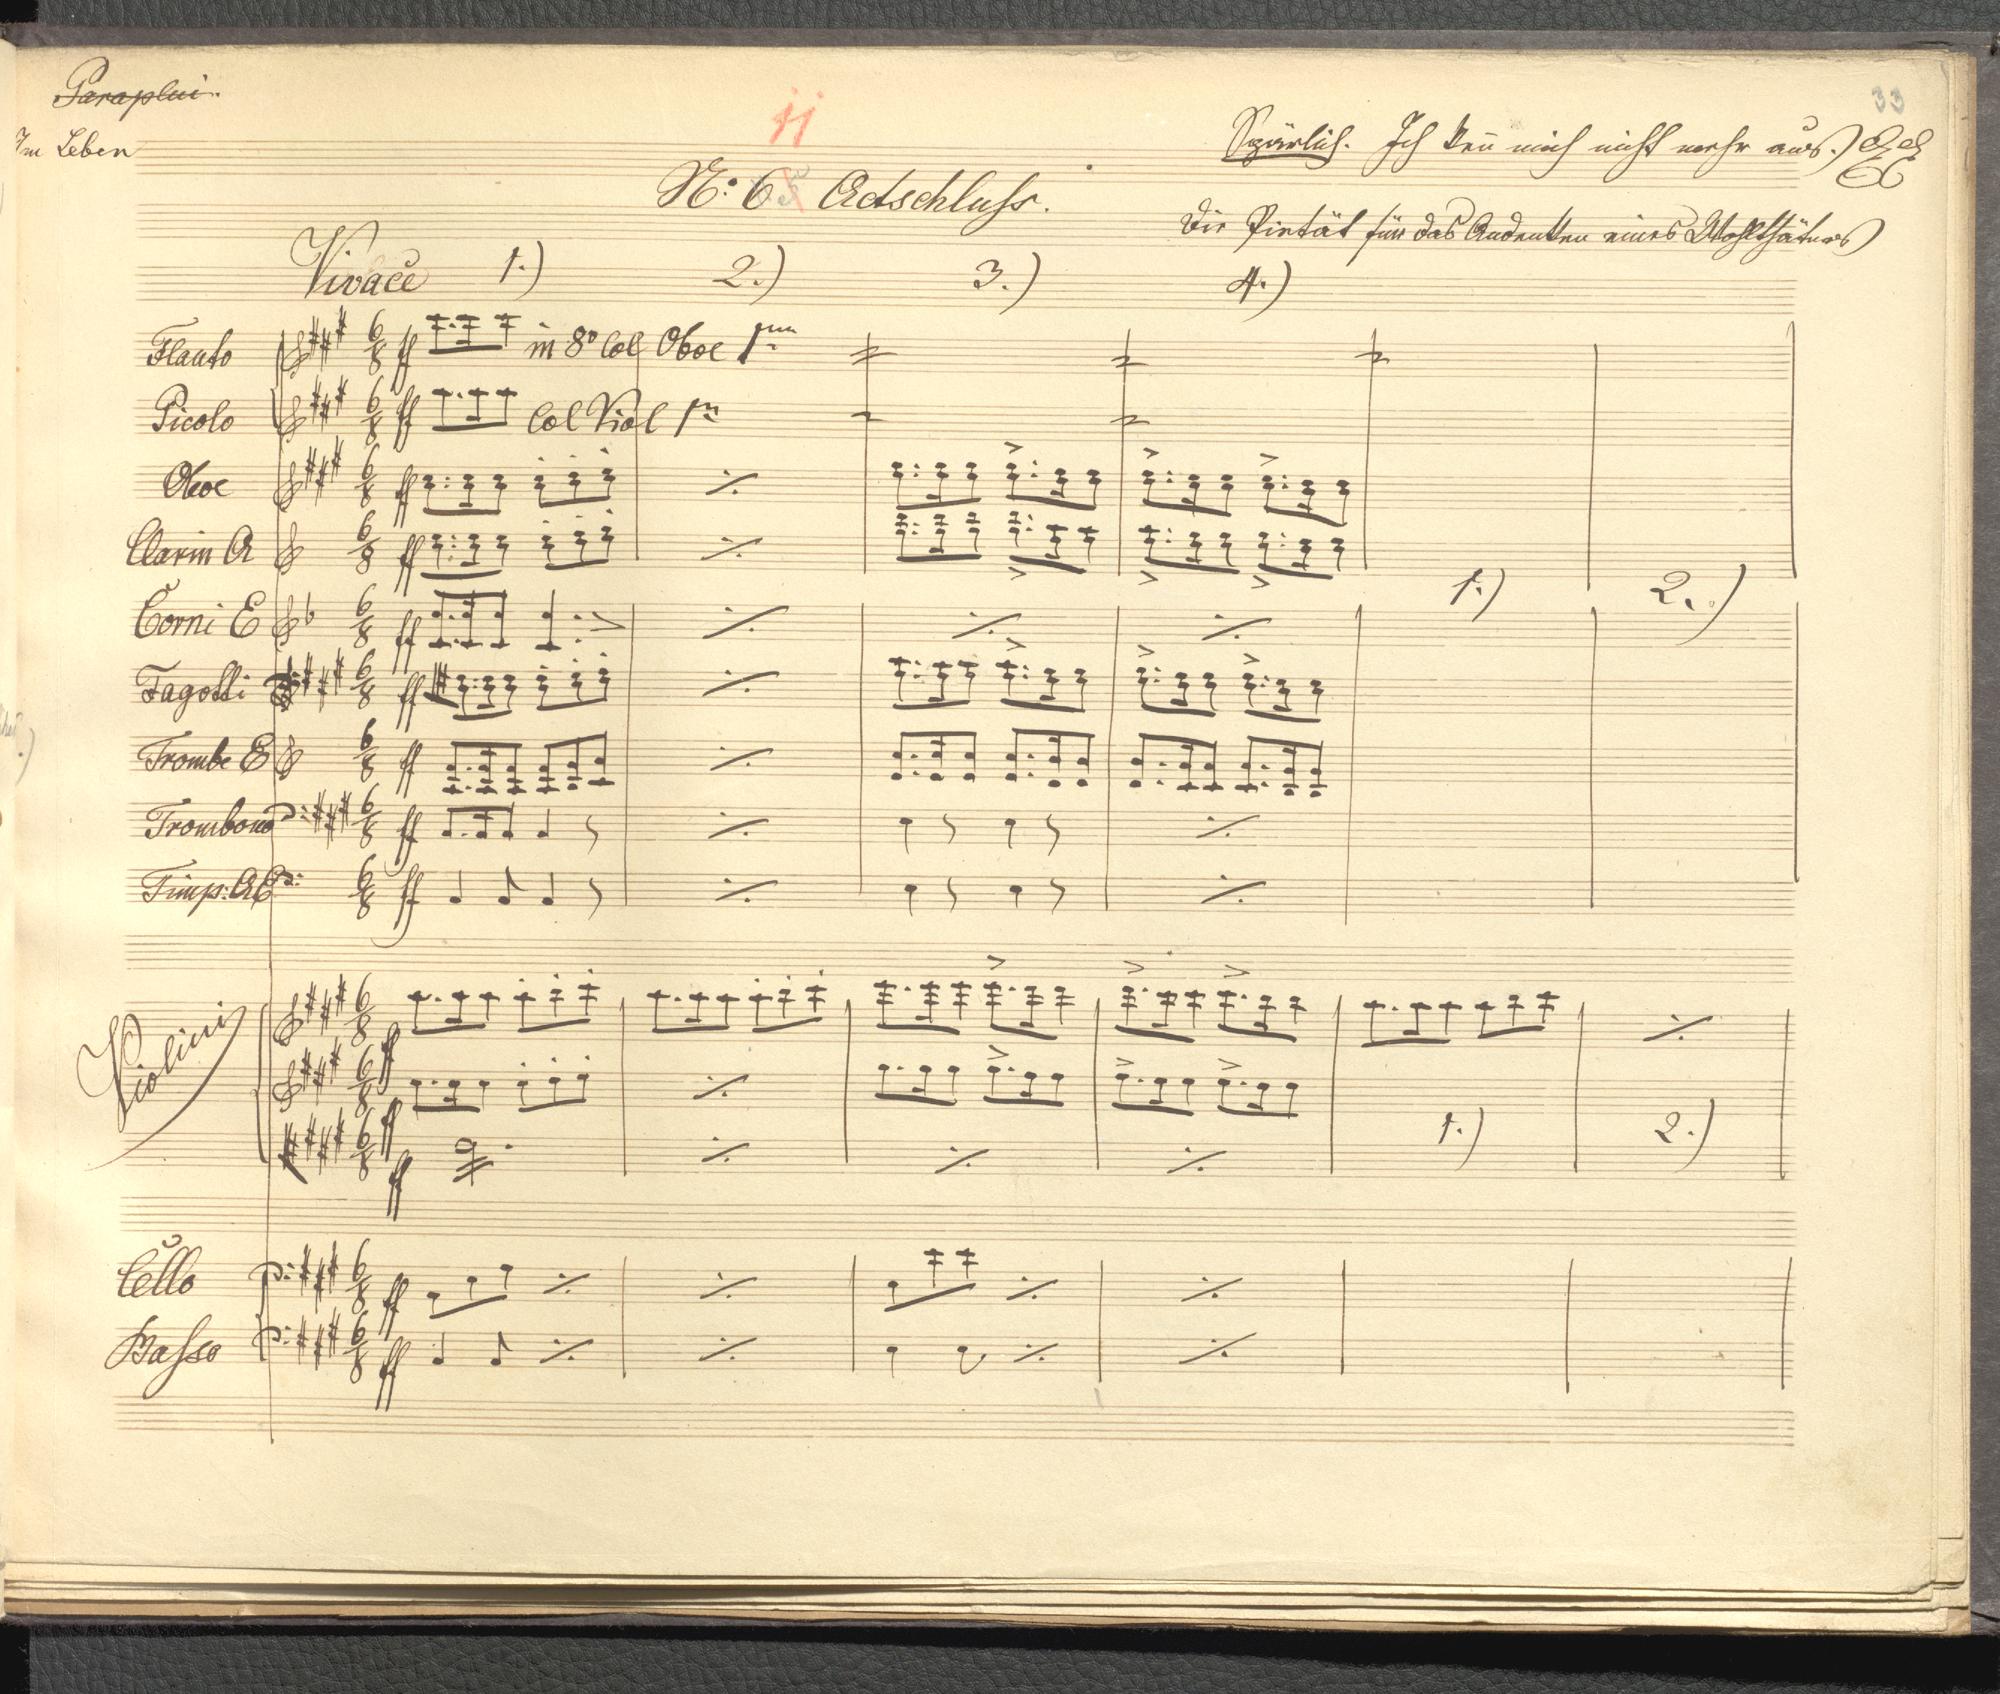 Paraplui.
Im Leben
11
33
Spärlich. Ich ken̄ mich nicht mehr aus.)
Nº: 6 5 Actschluss.
Die Pietät für das Andenken eines Wohlthäters)
Vivace 1.) 2.) 3.) 4.)
Flauto 6/8 ff in 8º Col Oboe 1mo
Picolo 6/8 ff Col Viol 1m
Oboe 6/8 ff
Clarin A 6/8 ff
1.) 2.)
Corni E 6/8 ff
Fagotti 6/8 ff
Trombe E 6/8 ff
Trombono 6/8 ff
Timp: AE 6/8 ff
Violini 6/8 ff
6/8 ff
6/8 ff 1.) 2.)
Cello 6/8 ff
Basso 6/8 ff